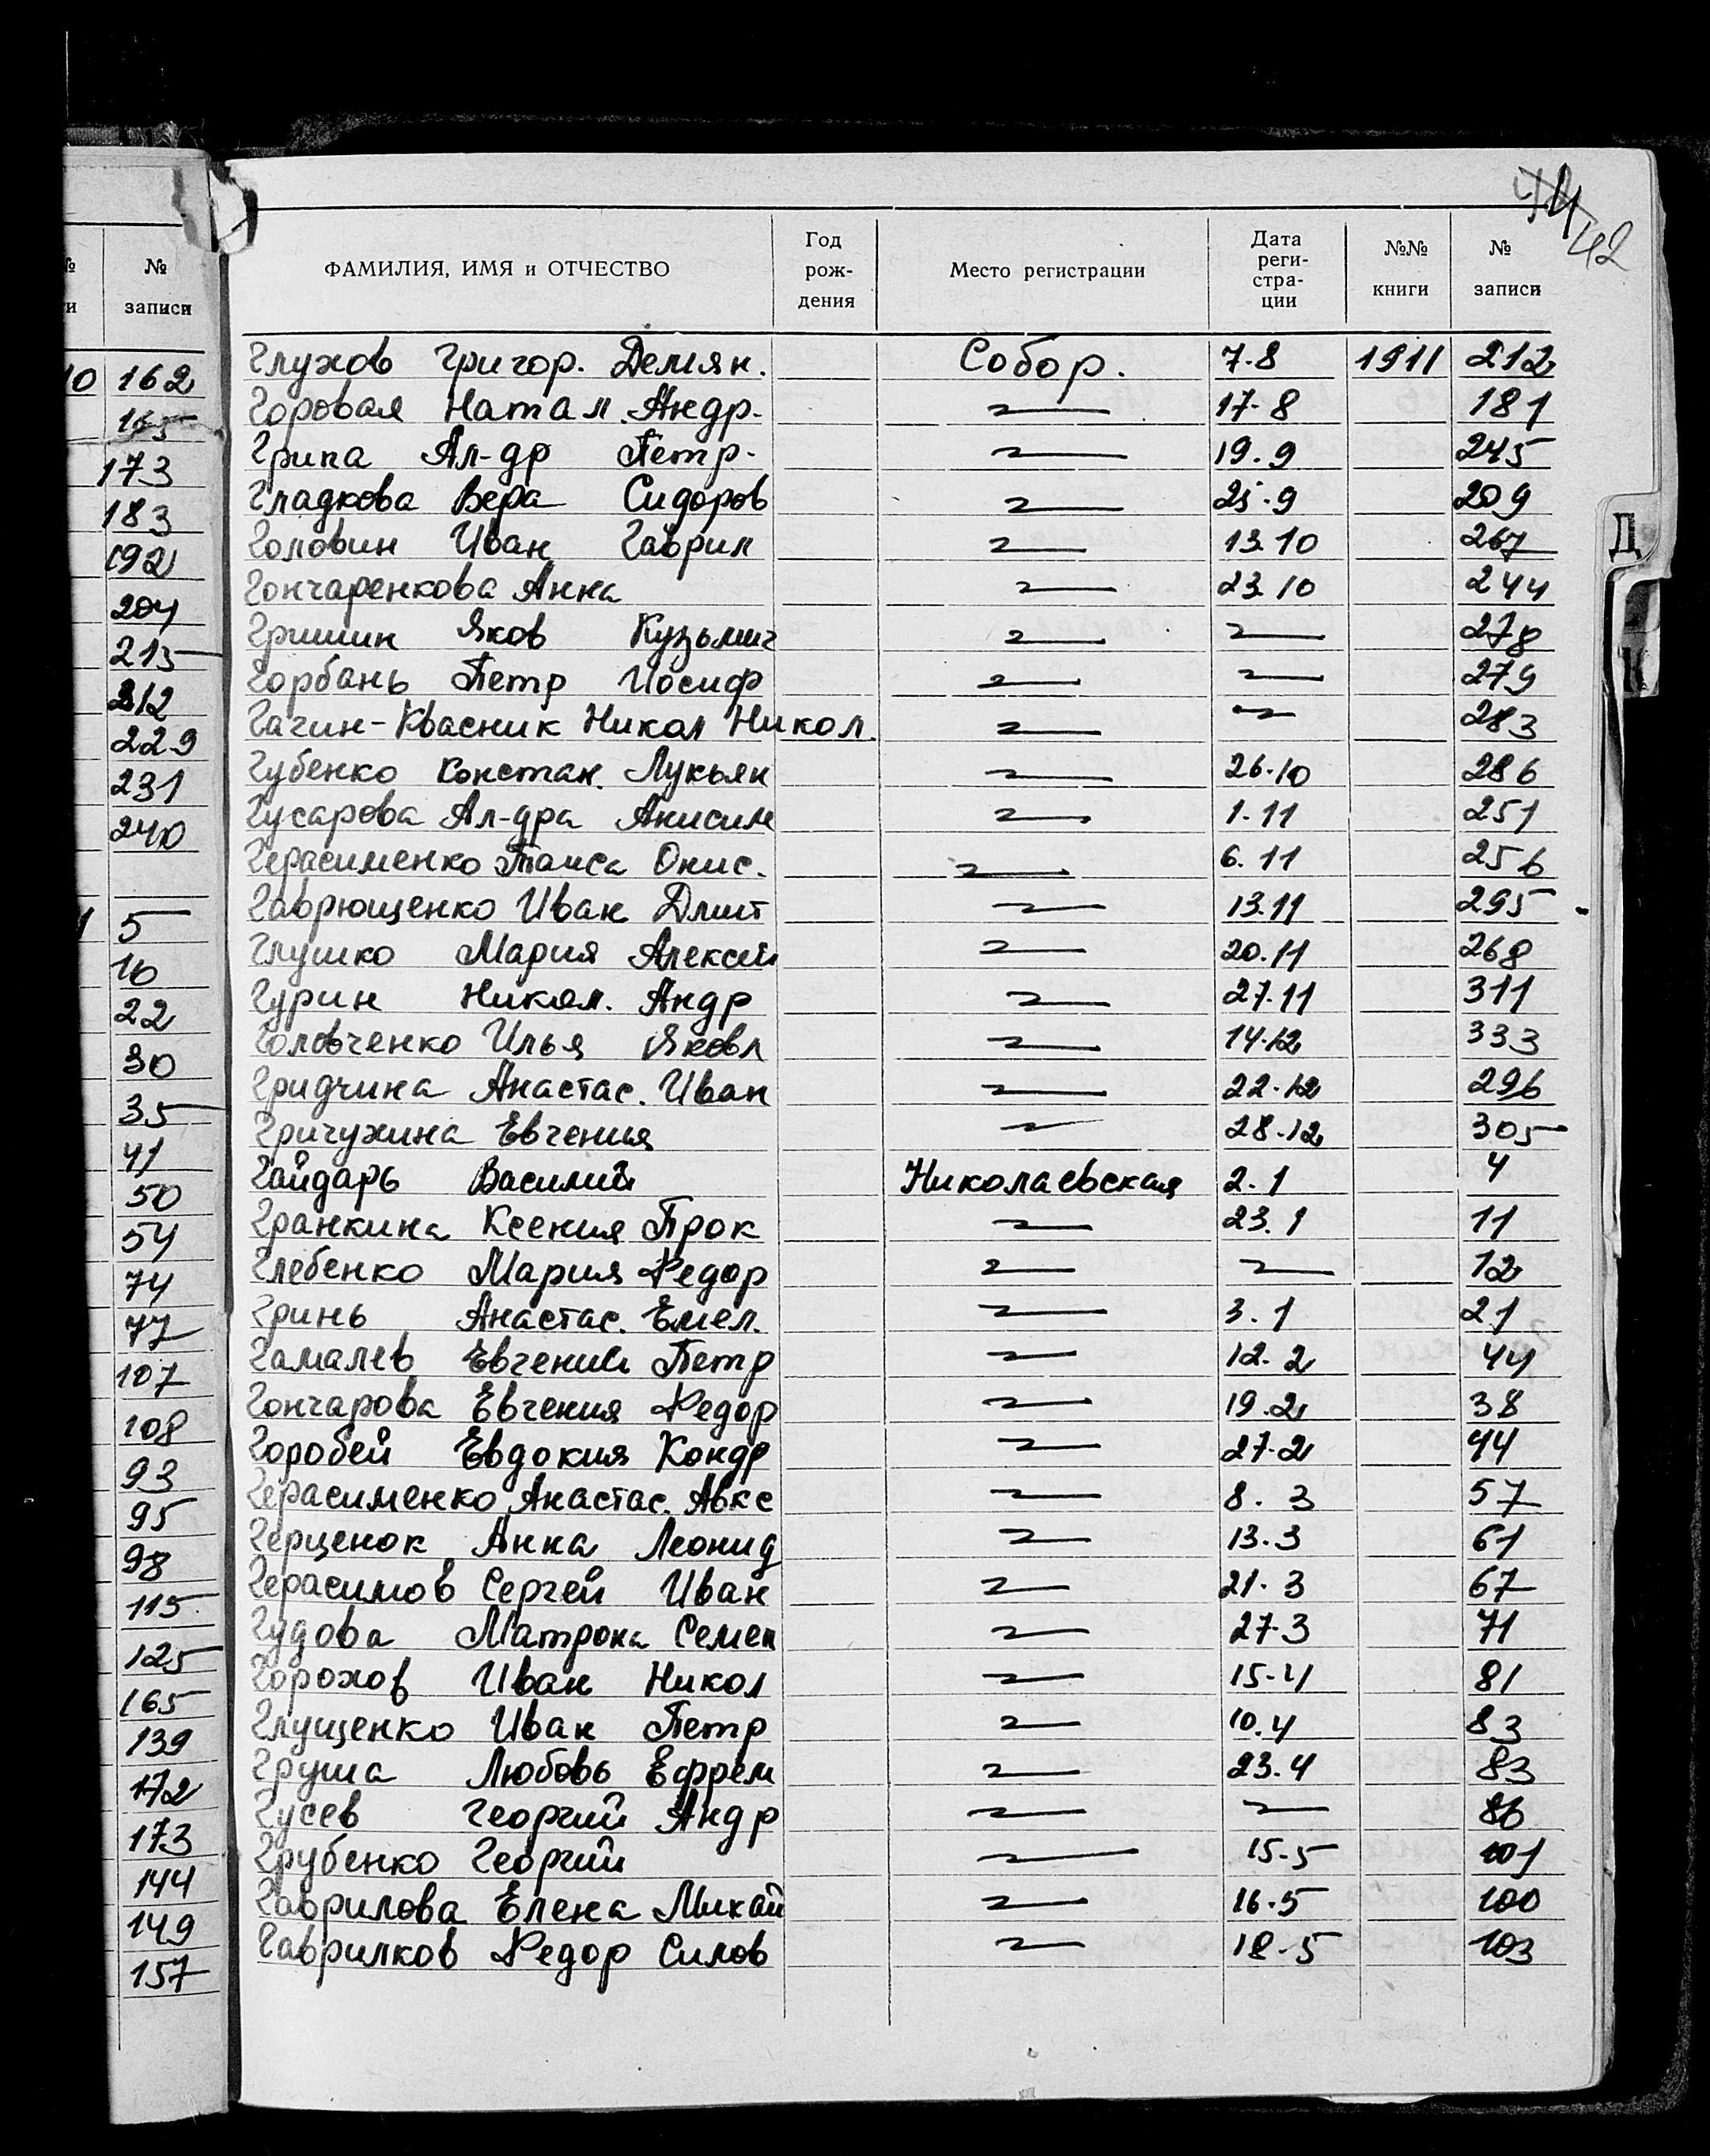 42
№ записи
ФАМИЛИЯ, ИМЯ и ОТЧЕСТВО Год рождения Место регистрации Дата регистрации №№ книги № записи
10 162
165
173
183
192
204
215
212
229
231
240
5
10
22
30
35
41
50
54
74
77
107
108
93
95
98
115
125
165
139
172
173
144
149
157
Глухов Григор. Демян. Собор. 7.8 1911 212
Горовая Натал. Андр. 〃 17.8 181
Грипа Ал-др Петр. 〃 19.9 245
Гладкова Вера Сидоров 〃 25.9 209
Головин Иван Гаврил 〃 13.10 267
Гончаренкова Анна 〃 23.10 244
Гришин Яков Кузьмич 〃 〃 278
Горбань Петр Иосиф 〃 〃 279
Гагин-Квасник Никол Никол. 〃 〃 283
Губенко Констан. Лукьян 〃 26.10 286
Гусарова Ал-дра Анисим 〃 1.11 251
Герасименко Таиса Онис. 〃 6.11 256
Гаврющенко Иван Дмит 〃 13.11 295
Глушко Мария Алексей 〃 20.11 268
Гурин Никол. Андр 〃 27.11 311
Головченко Илья Яковл 〃 14.12 333
Гридчина Анастас. Иван 〃 22.12 296
Гричухина Евгения 〃 28.12 305
Гайдарь Василий Николаевская 2.1 4
Гранкина Ксения Прок 〃 23.1 11
Глебенко Мария Федор 〃 〃 12
Гринь Анастас. Емел. 〃 3.1 21
Гамалев Евгений Петр 〃 12.2 44
Гончарова Евгения Федор 〃 19.2 38
Горобей Евдокия Кондр 〃 27.2 44
Герасименко Анастас. Авкс 〃 8.3 57
Герценок Анна Леонид 〃 13.3 61
Герасимов Сергей Иван 〃 21.3 67
Гудова Матрона Семен 〃 27.3 71
Горохов Иван Никол 〃 15.4 81
Глущенко Иван Петр 〃 10.4 83
Груша Любовь Ефрем 〃 23.4 83
Гусев Георгий Андр 〃 〃 86
Грубенко Георгий 〃 15.5 101
Гаврилова Елена Михай 〃 16.5 100
Гаврилков Федор Силов 〃 18.5 103
Д
К